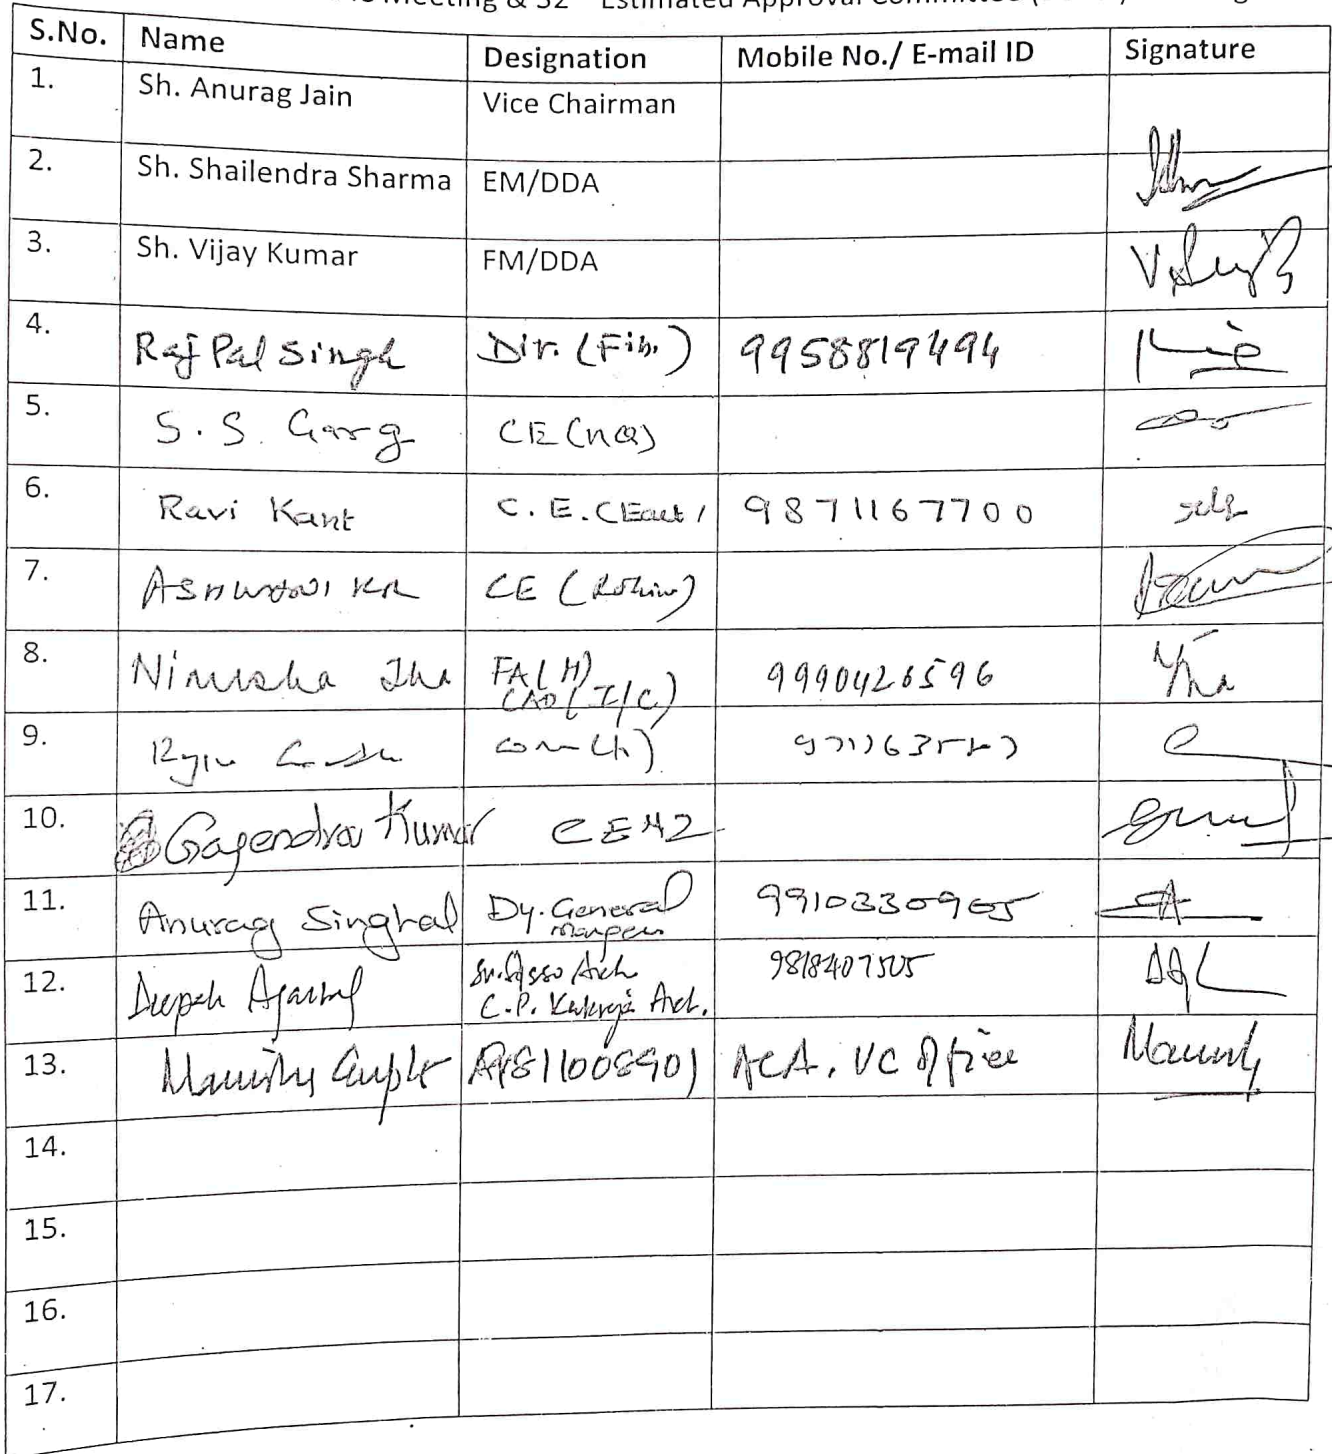 Meeting & 32 Estimated Approval Committee
S.No. Name Designation Mobile No./ E-mail ID Signature
1. Sh. Anurag Jain Vice Chairman
2. Sh. Shailendra Sharma EM/DDA
3. Sh. Vijay Kumar FM/DDA
4. Raj Pal Singh Dir. (Fin.) 9958819494
5. S. S. Garg CE (HQ)
6. Ravi Kant C. E. (East) 9871167700
7. CE (Rohini)
8. Nimisha Jha FA(H) 9990426596
CAO(I/C)
9.
10. Gagendra Kumar CEHZ
11. Anurag Singhal Dy. General 9910330905
Manager
12. Deepak Agarwal Sr. Asso Arch 9818407505
C.P. Kukreja Arch.
13. Manish Gupta 9811008901 ACA, VC Office
14.
15.
16.
17.